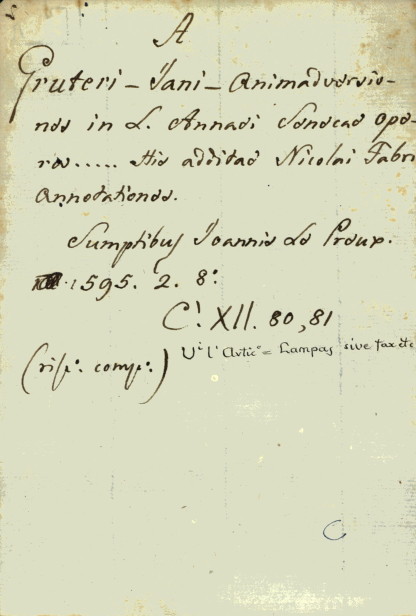 A
Gruteri - Jani - Animadversio-
nes in L. Annaei Senecae ope-
ra..... His additae Nicolai Fabri
Annotationes.
Sumptibus Joannis Le Preux.
1595. 2. 8º
C! XII. 80, 81
Vi l'Artic° = Lampas sive fax etc
(risp. comp.)
C